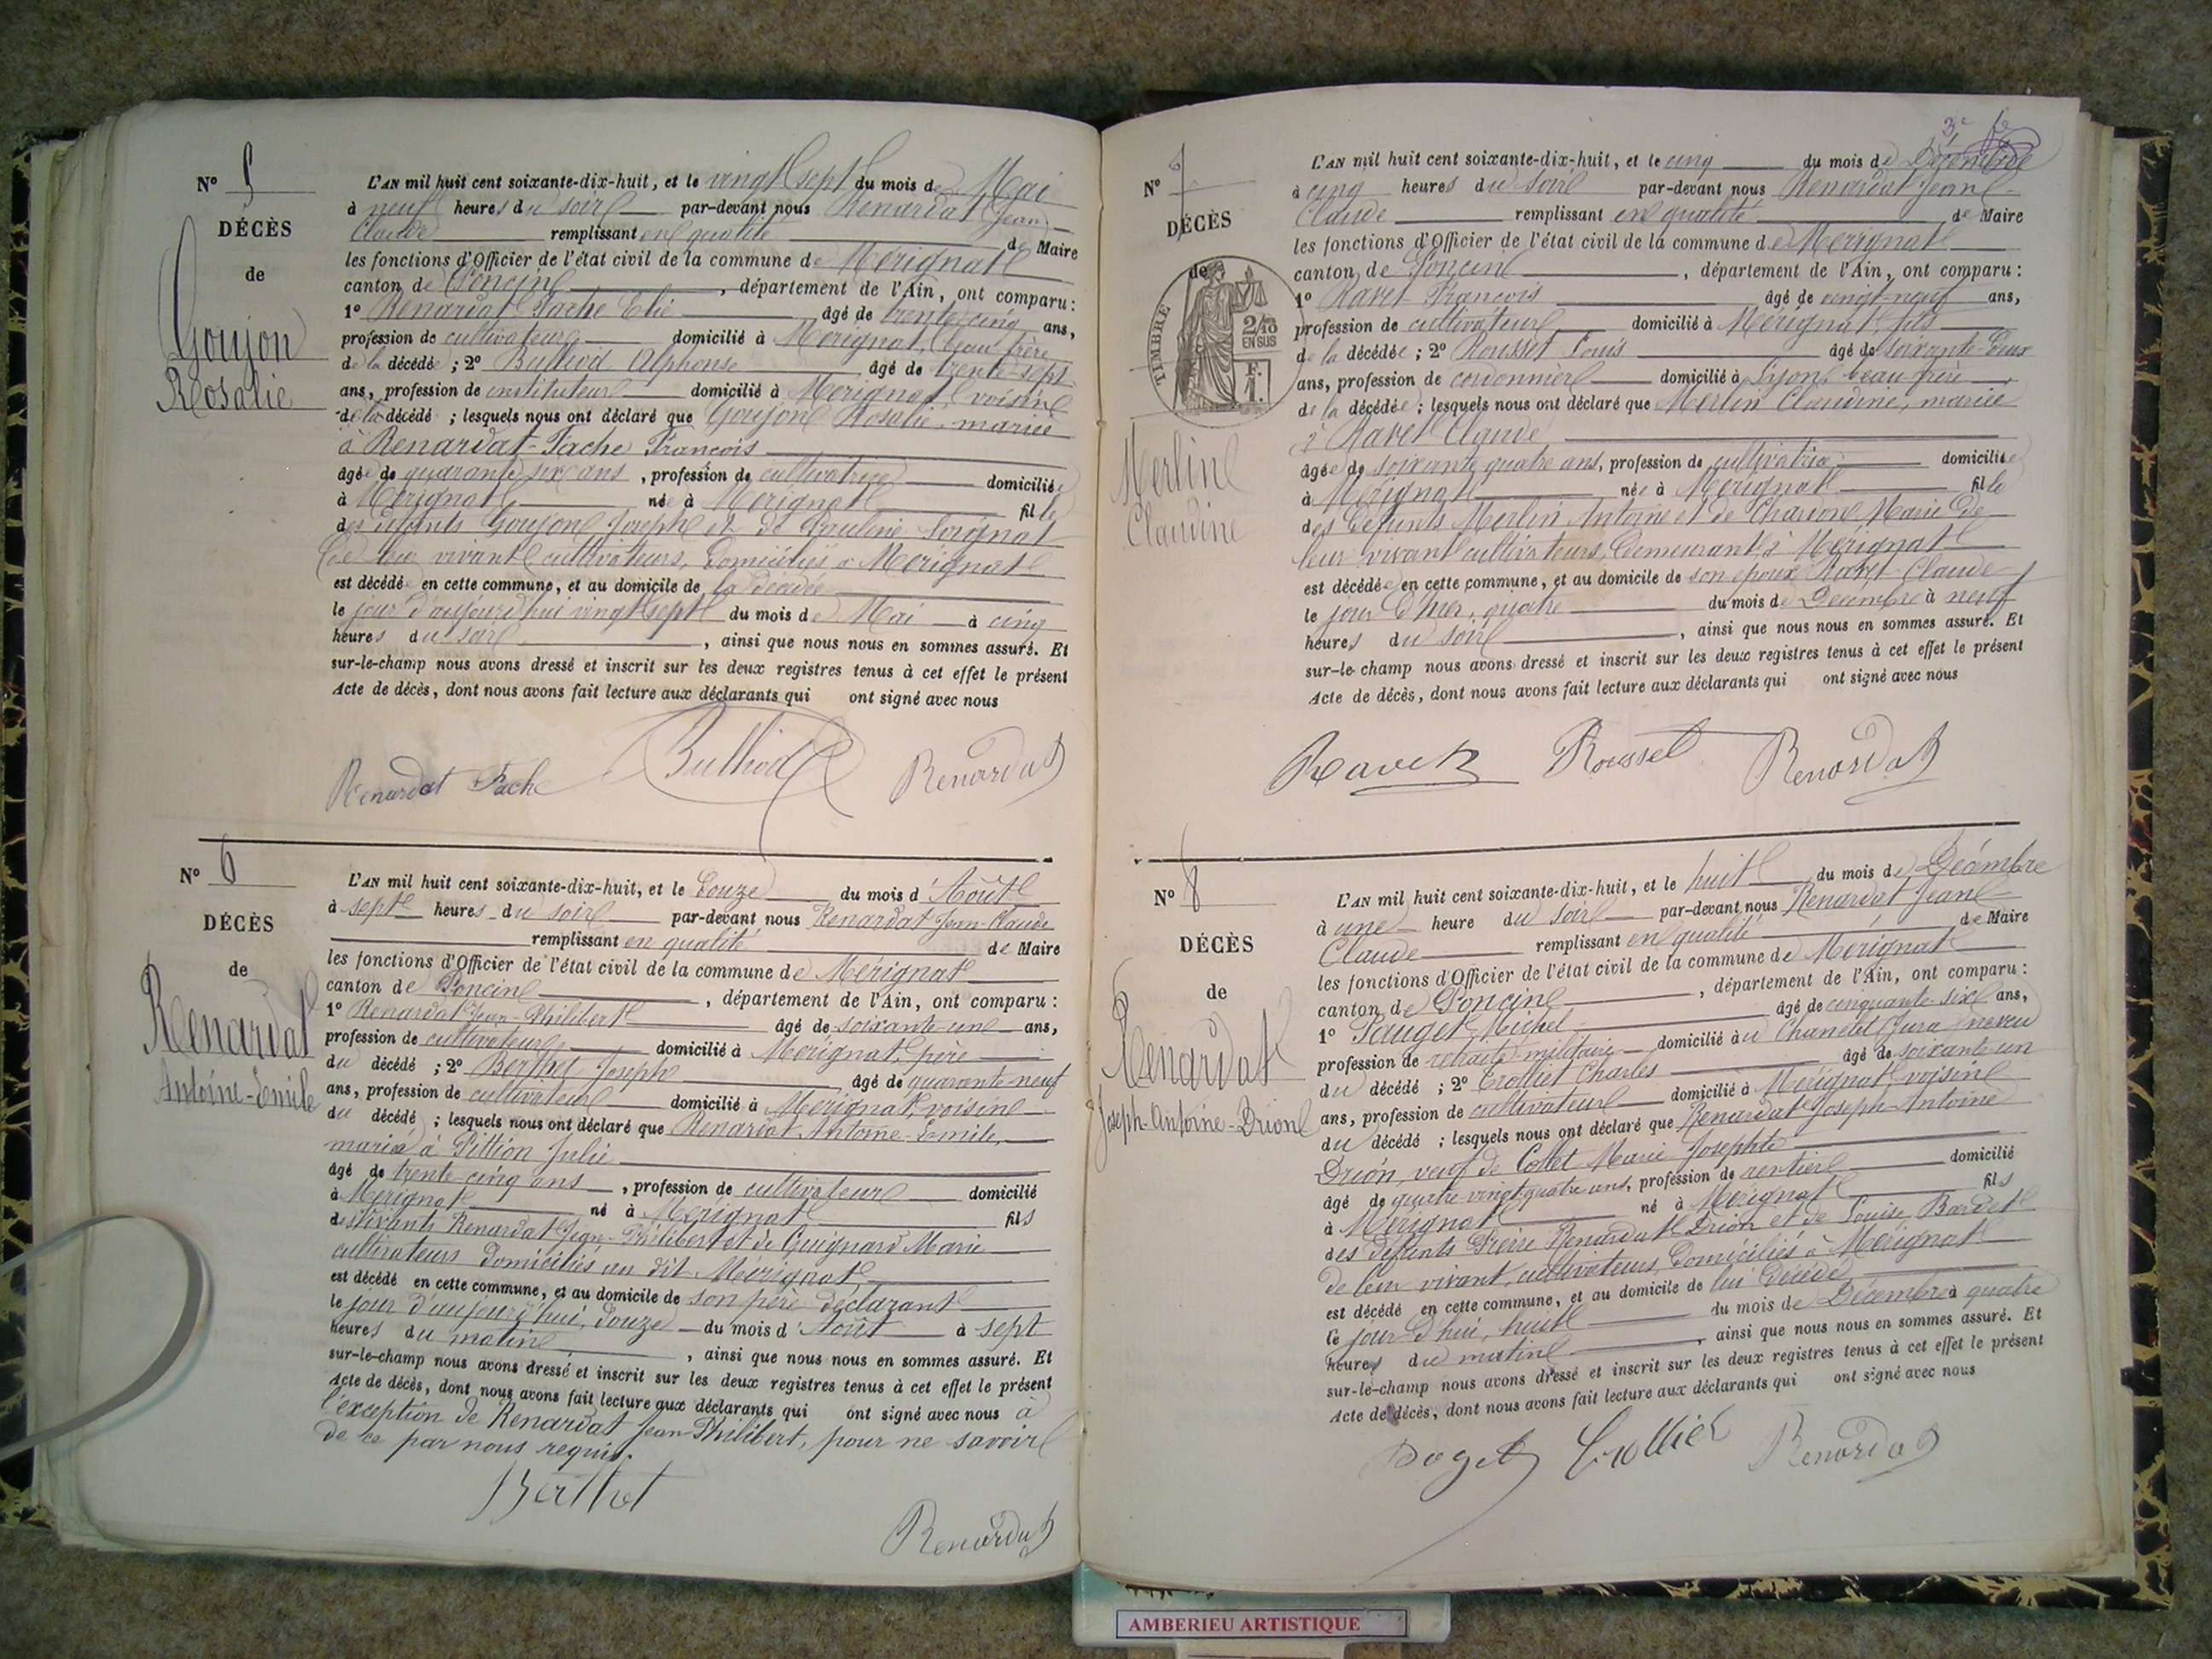 N° 5
DÉCÈS
de
Goujon
Rosalie
L'AN mil huit cent soixante-dix-huit, et le vingt sept du mois de Mai
à neuf heures du soir par-devant nous Renardat Jean
Claude remplissant en qualité de Maire
les fonctions d'Officier de l'état civil de la commune de Mérignat
canton de Poncin, département de l'Ain, ont comparu :
1° Renardat-Tache Elie âgé de trente cinq ans,
profession de cultivateur domicilié à Mérignat, beau frère
de la décédé ; 2° Bulliod Alphonse âgé de trente-sept
ans, profession de instituteur domicilié à Mérignat, voisin
de la décédé ; lesquels nous ont déclaré que Goujon Rosalie, mariée
à Renardat-Tache François
âgée de quarante six ans, profession de cultivatrice domiciliée
à Mérignat née à Mérignat fille
des défunts Goujon Joseph et de Pauline
de leur vivant cultivateurs, domiciliés à Mérignat
est décédée en cette commune, et au domicile de la décédée
le jour d'aujourd'hui vingt sept du mois de Mai à cinq
heures du soir, ainsi que nous nous en sommes assuré. Et
sur-le-champ nous avons dressé et inscrit sur les deux registres tenus à cet effet le présent
Acte de décès, dont nous avons fait lecture aux déclarants qui ont signé avec nous
Renardat Tache Bulliod Renardat
N° 6
DÉCÈS
de
Renardat
Antoine-Emile
L'AN mil huit cent soixante-dix-huit, et le douze du mois d'Août
à sept heures du soir par-devant nous Renardat Jean-Claude
remplissant en qualité de Maire
les fonctions d'Officier de l'état civil de la commune de Mérignat
canton de Poncin, département de l'Ain, ont comparu :
1° Renardat Jean-Philibert âgé de soixante-un ans,
profession de cultivateur domicilié à Mérignat, père
du décédé ; 2° Berthet Joseph âgé de quarante neuf
ans, profession de cultivateur domicilié à Mérignat, voisin
du décédé ; lesquels nous ont déclaré que Renardat Antoine-Emile,
marié à Pittion Julie
âgé de trente cinq ans, profession de cultivateur domicilié
à Mérignat né à Mérignat fils
des vivants Renardat Jean-Philibert et de Guignard Marie
cultivateurs domiciliés au dit Mérignat
est décédé en cette commune, et au domicile de son père déclarant
le jour d'aujourd'hui, douze du mois d'Août à sept
heures du matin, ainsi que nous nous en sommes assuré. Et
sur-le-champ nous avons dressé et inscrit sur les deux registres tenus à cet effet le présent
Acte de décès, dont nous avons fait lecture aux déclarants qui ont signé avec nous à
l'exception de Renardat Jean-Philibert, pour ne savoir
de ce par nous requis.
Berthet
Renardat
3e
N°
DÉCÈS
de
TIMBRE
2/10
EN SUS
F.
1.
Merlin
Claudine
L'AN mil huit cent soixante-dix-huit, et le cinq du mois de Décembre
à cinq heures du soir par-devant nous Renardat Jean
Claude remplissant en qualité de Maire
les fonctions d'Officier de l'état civil de la commune de Mérignat
canton de Poncin, département de l'Ain, ont comparu :
1° Ravet François âgé de vingt-neuf ans,
profession de cultivateur domicilié à Mérignat, fils
de la décédée ; 2° Rousset Louis âgé de soixante-deux
ans, profession de cordonnier domicilié à beau frère
de la décédée ; lesquels nous ont déclaré que Merlin Claudine, mariée
à Ravet Claude
âgée de soixante quatre ans, profession de cultivatrice domiciliée
à Mérignat née à Mérignat fille
des défunts Merlin Antoine et de Marie de
leur vivant cultivateurs, demeurant à Mérignat
est décédée en cette commune, et au domicile de son époux Ravet Claude
le jour d'hier, quatre du mois de Décembre à neuf
heures du soir, ainsi que nous nous en sommes assuré. Et
sur-le-champ nous avons dressé et inscrit sur les deux registres tenus à cet effet le présent
Acte de décès, dont nous avons fait lecture aux déclarants qui ont signé avec nous
Ravet Rousset Renardat
N° 8
DÉCÈS
de
Renardat
Joseph-Antoine-Drion
L'AN mil huit cent soixante-dix-huit, et le huit du mois de Décembre
à une heure du soir par-devant nous Renardat Jean
Claude remplissant en qualité de Maire
les fonctions d'Officier de l'état civil de la commune de Mérignat
canton de Poncin, département de l'Ain, ont comparu :
1° Michel âgé de cinquante-six ans,
profession de retraité militaire domicilié au Jura neveu
du décédé ; 2° Trolliet Charles âgé de soixante-un
ans, profession de cultivateur domicilié à Mérignat, voisin
du décédé ; lesquels nous ont déclaré que Renardat Joseph-Antoine
Drion, veuf de Collet Marie Josephte
âgé de quatre vingt quatre ans, profession de rentier domicilié
à Mérignat né à Mérignat fils
des défunts Pierre Renardat Drion et de Louise Bardet
de leur vivant, cultivateurs, domiciliés à Mérignat
est décédé en cette commune, et au domicile de lui décédé
ce jour d'hui, huit du mois de Décembre à quatre
heures du matin, ainsi que nous nous en sommes assuré. Et
sur-le-champ nous avons dressé et inscrit sur les deux registres tenus à cet effet le présent
Acte de décès, dont nous avons fait lecture aux déclarants qui ont signé avec nous
Trolliet Renardat
AMBERIEU ARTISTIQUE